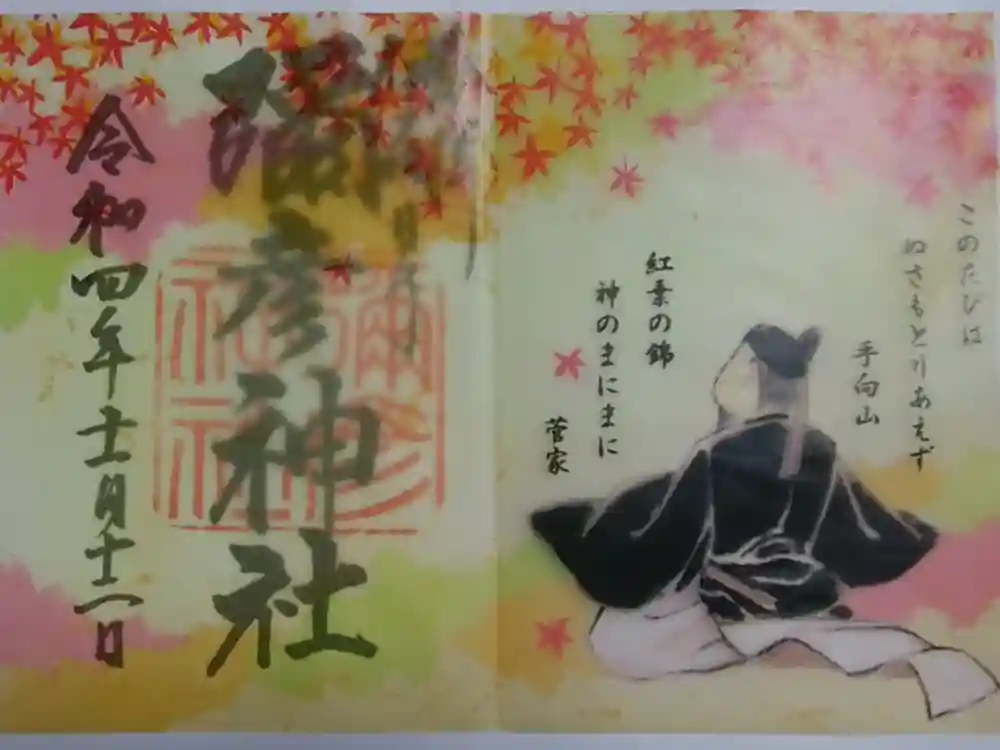 このたびは
ぬさもとりあえず
手向山
紅葉の錦
神のまにまに
菅家
彌彦神社
令和四年十一月十二日